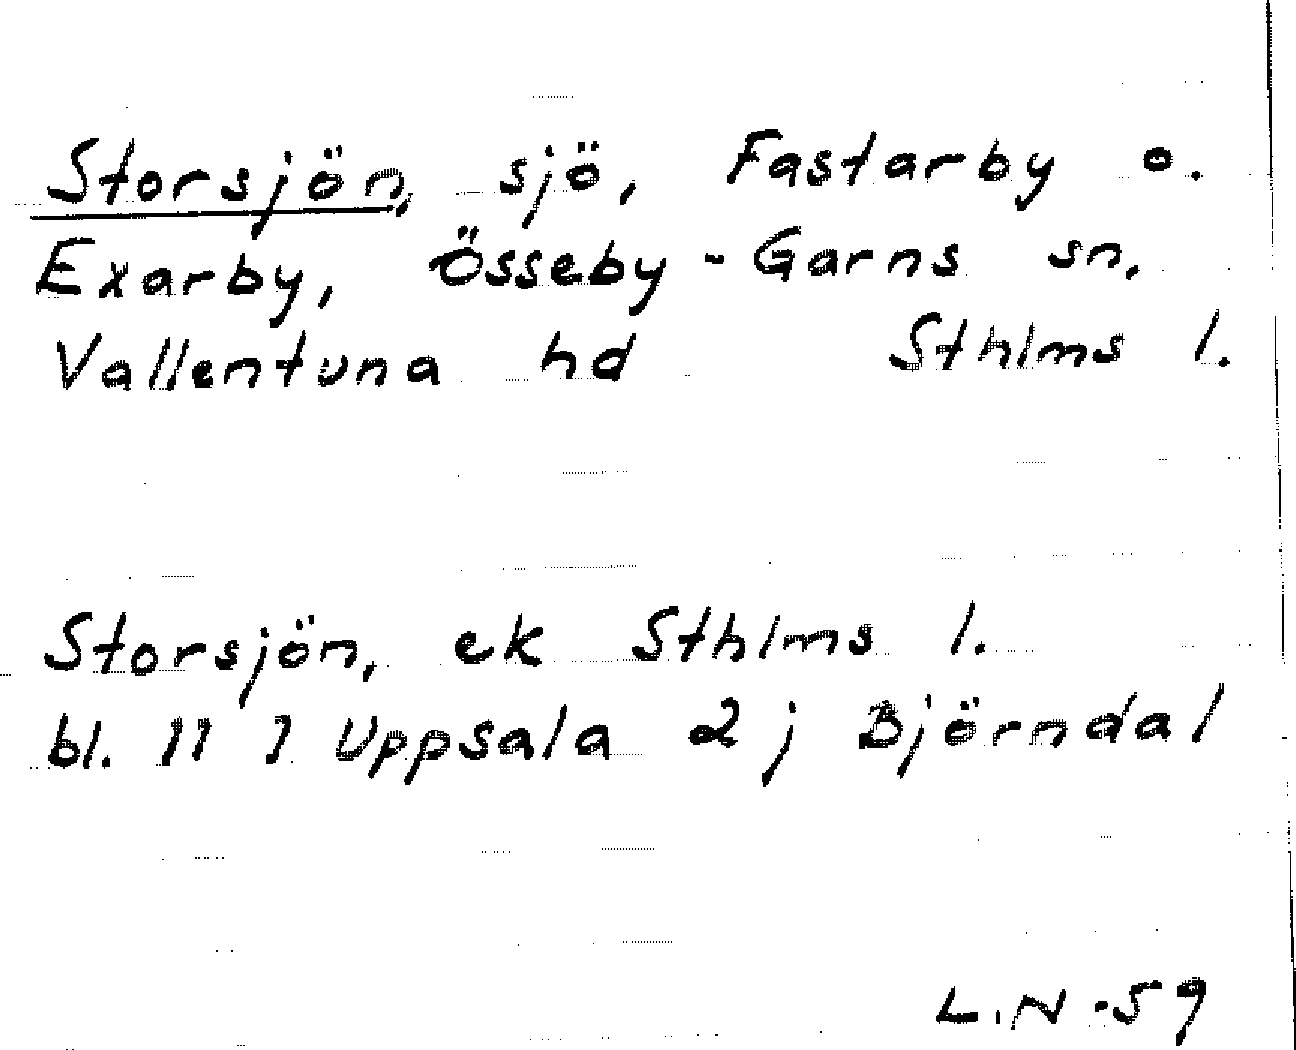 Storsjön, sjö, Fastarby o.
Exarby, Össeby-Garns sn,
Vallentuna hd Sthlms l.
Storsjön, ek Sthlms l.
bl. 11 I Uppsala 2 j Björndal
L.N.59